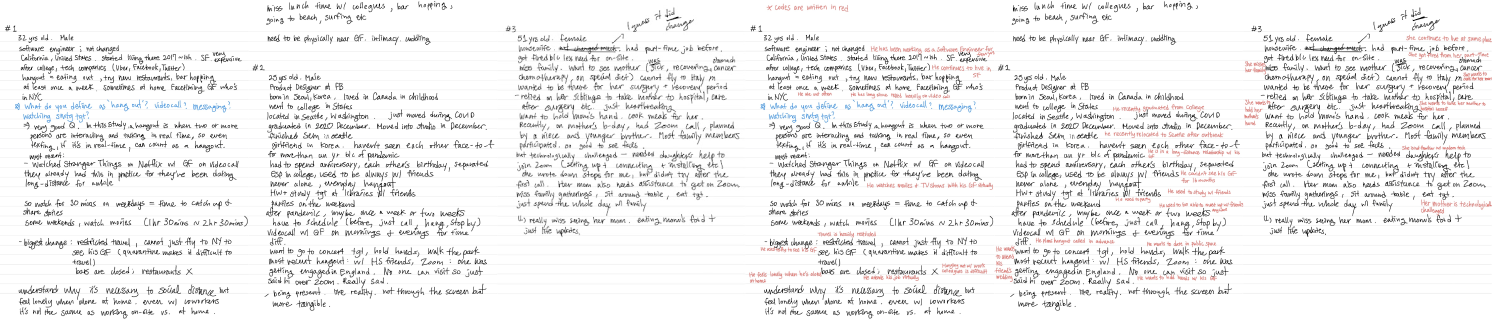 #1
32 yrs old. Male
software engineer ; not changed
California, United States. started living there 2017 march. SF. very expensive
after college, tech companies (Uber, Facebook, Twitter)
hangout = eating out, try new restaurants, bar hopping
at least once a week. sometimes at home. Facetiming GF who's
in NYC
Q) What do you define as 'hang out'? videocall? messaging?
watching smth tgt?
⇒ very good Q. in this study a hangout is when two or more
persons are interacting and talking in real time, so even
texting, if it's in real-time, can count as a hangout.
most recent:
- Watched Stranger Things on Netflix w/ GF on videocall
they already had this in practice for they've been dating
long-distance for awhile
so watch for 30 mins on weekdays = time to catch up &
share stories
some weekends, watch movies (1hr 30mins ~ 2hr 30mins)
- biggest change: restricted travel, cannot just fly to NY to
see his GF (quarantine makes it difficult to
travel)
bars are closed; restaurants X
understand why it's necessary to social distance but
feel lonely when alone at home. even w/ coworkers
it's not the same as working on-site vs. at home.
miss lunch time w/ collegues, bar hopping,
going to beach, surfing etc
need to be physically near GF. intimacy. cuddling
#2
25 yrs old. Male
Product Designer at FB
born in Seoul, Korea, lived in Canada in childhood
went to college in States
located in Seattle, Washington. just moved during COVID
graduated in 2020 December. Moved into studio in December.
finished 5km in seattle
girlfriend in korea. haven't seen each other face-to-f
for more than our yr b/c of pandemic
had to spend anniversary, each other's birthday, separated
ESP in college, used to be always w/ friends
never alone, everyday hangout
HW + study tgt at libraries w/ friends
parties on the weekend
after pandemic, maybe once a week or two weeks
have to schedule (before, just call, hang, stop by)
videocall w/ GF on mornings + evenings for time
diff.
want to go to concert tgt, hold hands, walk the park
most recent hangout: w/ HS friends, Zoom: one was
getting engaged in England. No one can visit so just
said hi over Zoom. Really sad.
- being present. the reality. not through the screen but
more tangible.
#3
I guess it did change
51 yrs old. female
housewife. had part-time job before.
got fired b/c less need for on-site.
miss family. want to see mother (was sick, recovering stomach cancer
chemotherapy, on special diet) cannot fly to Italy
wanted to be there for her surgery + recovery period
- relied on her siblings to take mother to hospital, care
after surgery etc. just heartbreaking
want to hold mom's hand. cook meals for her.
Recently, on mother's b-day, had Zoom call, planned
by a niece and younger brother. Most family members
participated. so good to see faces.
but technologically challenged - needed daughter's help to
join Zoom (setting up + connecting + installing etc)
she wrote down steps for me, but didn't try after the
first call. Her mom also needs assistance to get on Zoom
miss family gatherings, sit around table, eat tgt.
just spend the whole day w/ family
↳ really miss seeing her mom. eating mom's food +
just life updates.
* codes are written in red
#1
32 yrs old. Male
software engineer ; not changed He has been working as a Software Engineer for
California, United States. started living there 2017 march. SF. very expensive
after college, tech companies (Uber, Facebook, Twitter) He continues to live in SF
hangout = eating out, try new restaurants, bar hopping
at least once a week. sometimes at home. Facetiming GF who's
in NYC
Q) What do you define as 'hang out'? videocall? messaging?
watching smth tgt?
⇒ very good Q. in this study a hangout is when two or more
persons are interacting and talking in real time, so even
texting, if it's in real-time, can count as a hangout.
most recent:
- Watched Stranger Things on Netflix w/ GF on videocall
they already had this in practice for they've been dating
long-distance for awhile
He watches movies & TV shows with his GF virtually
so watch for 30 mins on weekdays = time to catch up &
share stories
some weekends, watch movies (1hr 30mins ~ 2hr 30mins)
Travel is heavily restricted
- biggest change: restricted travel, cannot just fly to NY to
see his GF (quarantine makes it difficult to
travel)
bars are closed; restaurants X
He feels lonely when he's alone at home
understand why it's necessary to social distance but
feel lonely when alone at home. even w/ coworkers
it's not the same as working on-site vs. at home.
miss lunch time w/ collegues, bar hopping,
going to beach, surfing etc
need to be physically near GF. intimacy. cuddling
#2
25 yrs old. Male
Product Designer at FB
born in Seoul, Korea, lived in Canada in childhood
went to college in States He recently graduated from College
located in Seattle, Washington. just moved during COVID
graduated in 2020 December. Moved into studio in December.
finished 5km in seattle
girlfriend in korea. haven't seen each other face-to-f
for more than our yr b/c of pandemic He is in a long-distance relationship w/ GF
had to spend anniversary, each other's birthday, separated
ESP in college, used to be always w/ friends
never alone, everyday hangout
HW + study tgt at libraries w/ friends He used to study w/ friends
parties on the weekend
after pandemic, maybe once a week or two weeks
have to schedule (before, just call, hang, stop by)
videocall w/ GF on mornings + evenings for time
diff.
want to go to concert tgt, hold hands, walk the park
most recent hangout: w/ HS friends, Zoom: one was
getting engaged in England. No one can visit so just
said hi over Zoom. Really sad.
- being present. the reality. not through the screen but
more tangible.
#3
I guess it did change
51 yrs old. female She continues to live at same place
housewife. had part-time job before.
got fired b/c less need for on-site.
miss family. want to see mother (was sick, recovering stomach cancer
chemotherapy, on special diet) cannot fly to Italy
wanted to be there for her surgery + recovery period
- relied on her siblings to take mother to hospital, care
after surgery etc. just heartbreaking
want to hold mom's hand. cook meals for her.
Recently, on mother's b-day, had Zoom call, planned
by a niece and younger brother. Most family members
participated. so good to see faces.
but technologically challenged - needed daughter's help to
join Zoom (setting up + connecting + installing etc)
she wrote down steps for me, but didn't try after the
first call. Her mom also needs assistance to get on Zoom
miss family gatherings, sit around table, eat tgt.
just spend the whole day w/ family Her mother is technologically challenged
↳ really miss seeing her mom. eating mom's food +
just life updates.